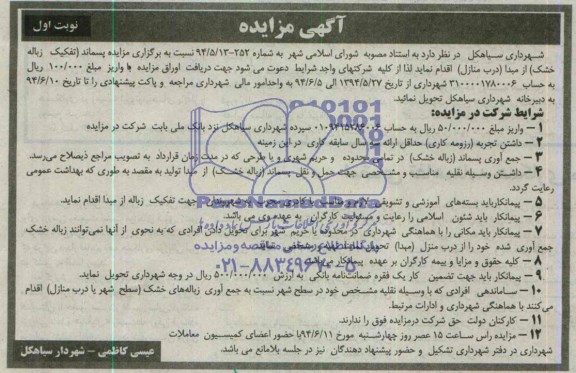 آگهی مزایده
نوبت اول
شهرداری سیاهکل در نظر دارد به استناد مصوبه شورای اسلامی شهر به شماره ۲۵۲-۹۴/۵/۱۳ نسبت به برگزاری مزایده پسماند (تفکیک زباله
خشک) از مبدا (درب منازل) اقدام نماید لذا از کلیه شرکتهای واجد شرایط دعوت می شود جهت دریافت اوراق مزایده با واریز مبلغ ۱۰۰/۰۰۰ ریال
به حساب ۳۱۰۰۰۰۱۷۸۰۰۰۶ شهرداری از تاریخ ۱۳۹۴/۵/۲۷ الی ۹۴/۶/۵ به واحدامور مالی شهرداری مراجعه و پاکت پیشنهادی را تا تاریخ ۹۴/۶/۱۰
به دبیرخانه شهرداری سیاهکل تحویل نمائید.
شرایط شرکت در مزایده:
۱ – واریز مبلغ ۵۰/۰۰۰/۰۰۰ ریال به حساب سپرده شهرداری سیاهکل نزد بانک ملی بابت شرکت در مزایده
۲ – داشتن تجربه (رزومه کاری) حداقل ارائه سه سال سابقه کاری در این زمینه
۳ – جمع آوری پسماند (زباله خشک) در تمامی محدوده و حریم شهری و یا طرحی که در مدت زمان قرارداد به تصویب مراجع ذیصلاح می‌رسد.
۴ – داشتن وسیله نقلیه مناسب و مشخصی جهت حمل و نقل پسماند (زباله خشک) از مبدا تولید به مقصد به طوری که بهداشت عمومی
رعایت گردد.
۵ – پیمانکارباید بسته‌های آموزشی و تشویقی جهت تفکیک زباله از مبدا اقدام نماید.
۶ – پیمانکار باید شئون اسلامی را رعایت و مسئولیت کارگران به عهده وی می باشد.
۷ – پیمانکار باید مکانی را با هماهنگی شهرداری در محدوده یا حریم شهر برای تحویل دادن افرادی که به نحوی از آنها نمی‌توانند زباله خشک
جمع آوری شده خود را از درب منزل (مبدا) تحویل
۸ – کلیه حقوق و مزایا و بیمه کارگران بر عهده پیمانکار می باشد.
۹ – پیمانکار باید جهت تضمین کار یک فقره ضمانت‌نامه بانکی به ارزش ۵۰۰/۰۰۰/۰۰۰ ریال در وجه شهرداری تحویل نماید.
۱۰ – ساماندهی افرادی که با وسیله نقلیه مشخص خود در سطح شهر نسبت به جمع آوری زباله‌های خشک (سطح شهر یا درب منازل) اقدام
می‌کنند با هماهنگی شهرداری و ادارات مرتبط.
۱۱ – کارکنان دولت حق شرکت درمزایده فوق را ندارند.
۱۲ – مزایده راس ساعت ۱۵ عصر روز چهارشنبه مورخ ۹۴/۶/۱۱ با حضور اعضای کمیسیون معاملات
شهرداری در دفتر شهرداری تشکیل و حضور پیشنهاد دهندگان نیز در جلسه بلامانع می باشد.
عیسی کاظمی – شهردار سیاهکل
ParsNamadData
۰۲۱-۸۸۳۴۹۶۷۰-۵